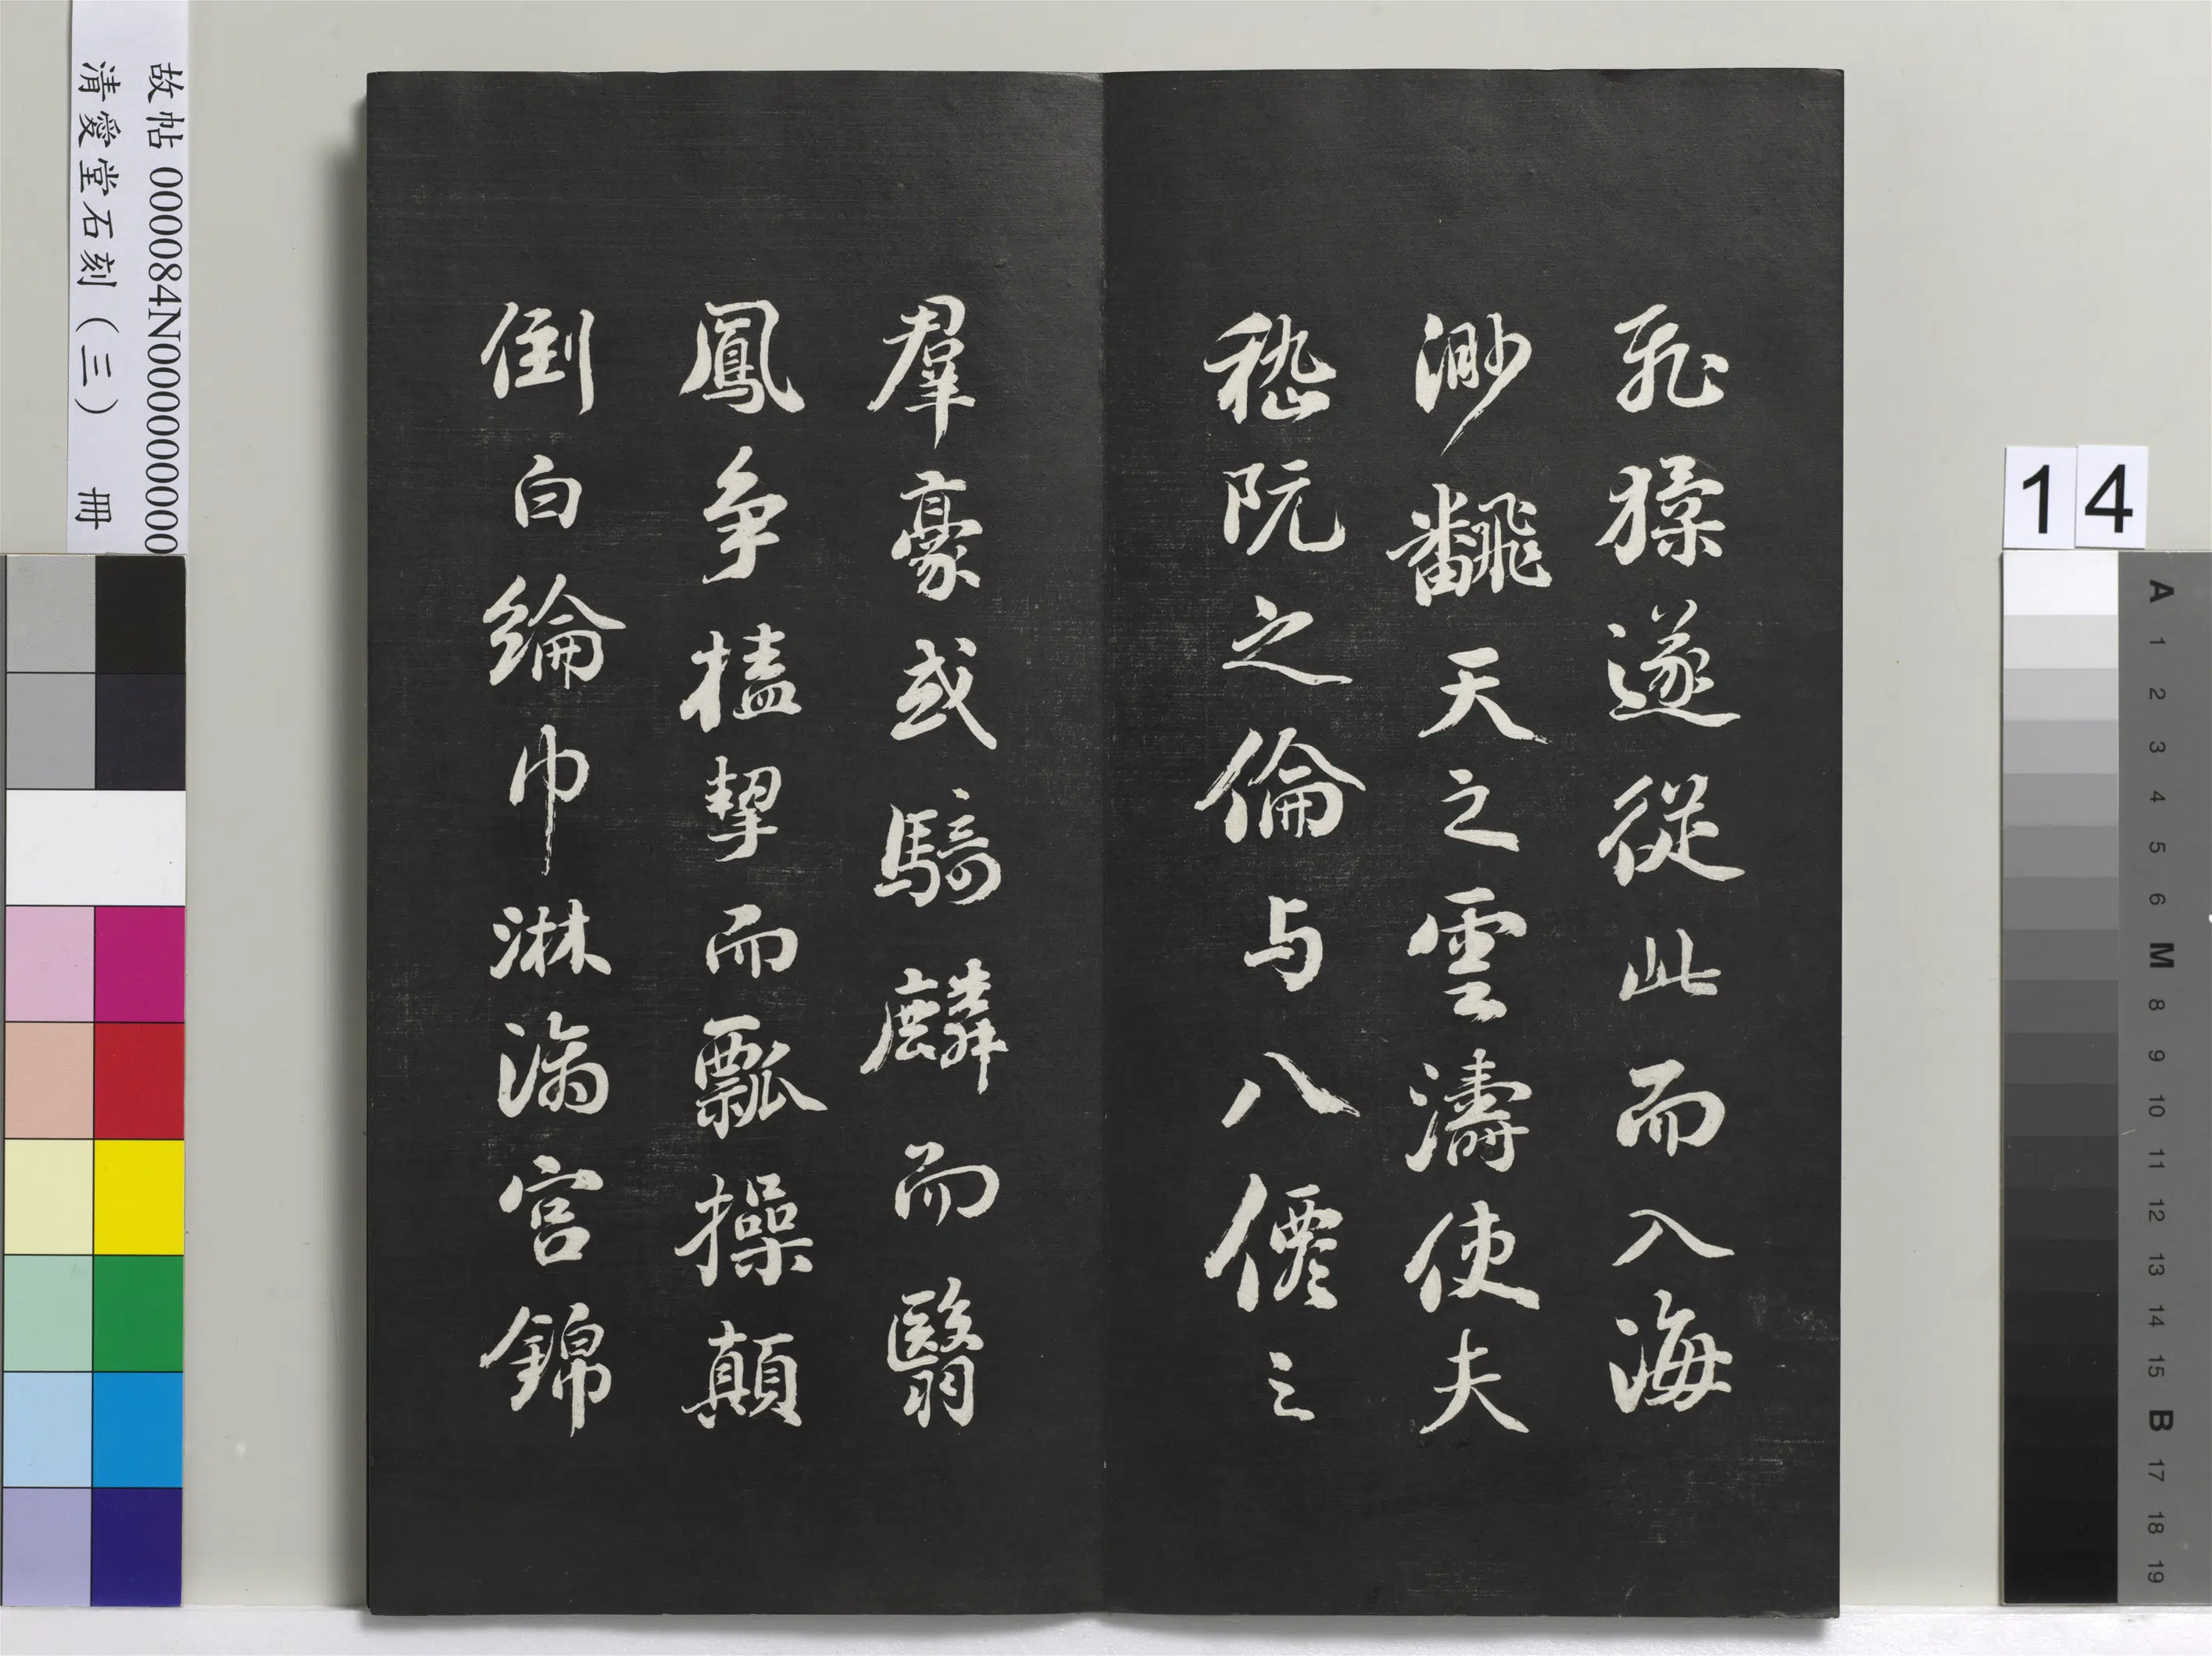 飛猱遂從此而入海
渺翻天之雲濤使夫
嵇阮之倫与八僊之
羣豪或騎麟而翳
鳳争榼挈而瓢操顛
倒白綸巾淋漓宮錦
故帖 000084N000000000
清愛堂石刻（三） 冊
14
A
1
2
3
4
5
6
M
8
9
10
11
12
13
14
15
B
17
18
19